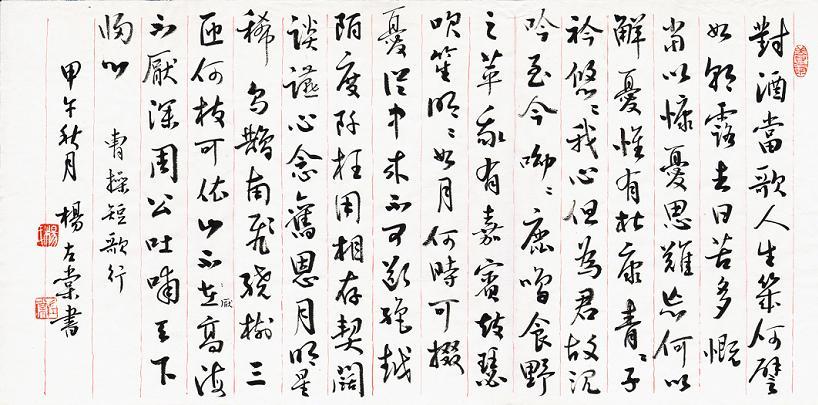 對酒當歌人生幾何譬
如朝露去日苦多慨
當以慷憂思難忘何以
解憂惟有杜康青〻子
衿悠〻我心但為君故沉
吟至今呦〻鹿鳴食野
之苹我有嘉賓鼓瑟
吹笙明〻如月何時可掇
憂從中來不可斷絕越
陌度阡枉用相存契闊
談讌心念舊恩月明星
稀 烏鵲南飛繞樹三
匝何枝可依山不在高海
厭
不厭深周公吐哺天下
歸心 曹操短歌行
甲午秋月 楊左棠書